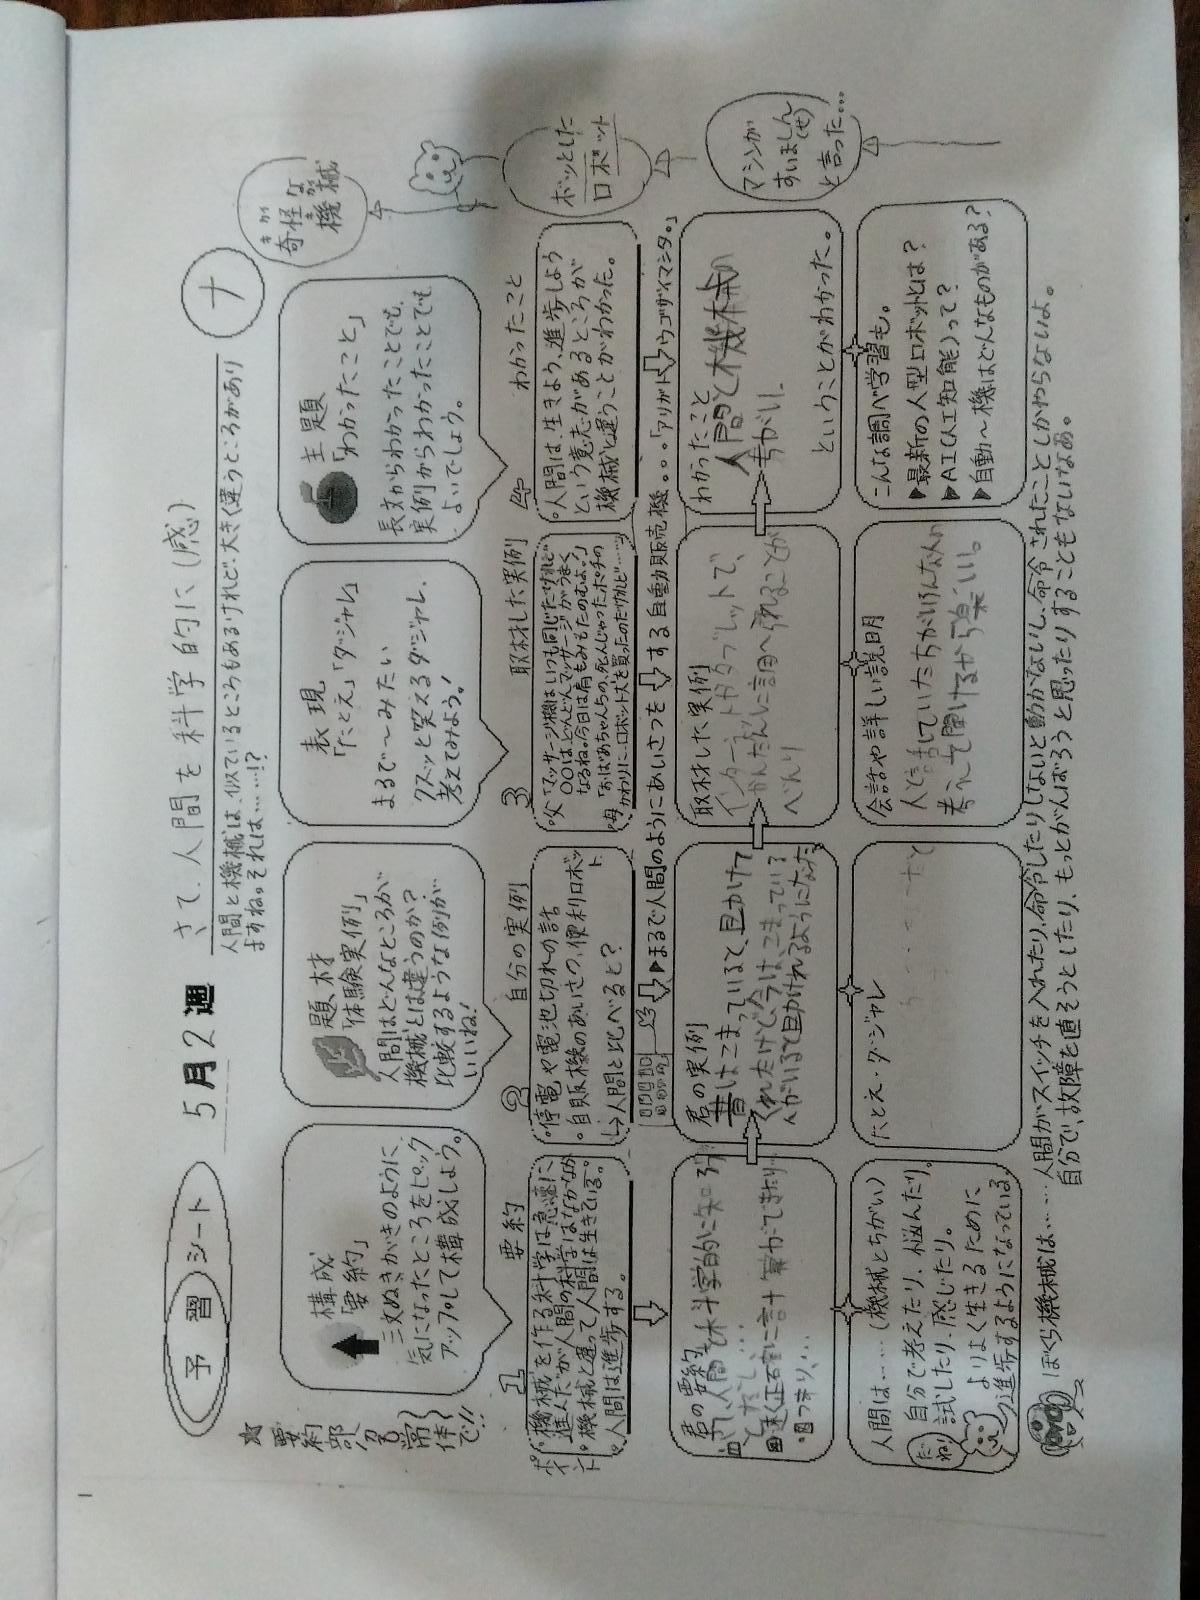 予習シート
5月2週
さて、人間を科学的に(感)
ナ
人間と機械は、似ているところもあるけれど、大き(違うところがあり
ますね。それは……!?
奇怪な
機械
★
要約
部分も
常体
で!!
構成
「要約」
三文ぬきがきのように
気になったところをピック
アップして構成しよう。
題材
「体験実例」
人間はどんなところが
機械とは違うのか?
比較するような例が
いいね!
表現
「たとえ」「ダジャレ」
まるで〜みたい
クスッと笑えるダジャレ、
考えてみよう!
主題
「わかったこと」
長文からわかったことでも、
実例からわかったことでも
よいでしょう。
1 要約
ポイント
・機械を作る科学は急速に
進んだが人間の科学はなかなか
・機械と違って人間は生きている。
・人間は進歩する。
2 自分の実例
・停電や電池切れの話
・自販機のあいさつ、便利ロボット
↳人間と比べると?
3 取材した実例
父「マッサージ機はいつも同じだけれど
〇〇はどんどんマッサージがうまく
なるね。今日は肩もみもたのむよ。」
母「おばあちゃんちの、死んじゃったポチの
かわりに、ロボット犬を買ったのだけれど……」
4 わかったこと
・人間は生きよう、進歩しよう
という意志があるところが
機械と違うことがわかった。
ボッとした
ロボット
▶まるで人間のようにあいさつをする自動販売機。。。「アリガトウゴザイマシタ。」
君の要約
人間も科学的に知ろ
とだし…
速く正確に計算ができたり
・
君の実例
昔はこまっていると、助けて
くれたけど今は、こまっている
人がいると助けれるようになった
取材した実例
インターネットやタブレットで、
かんたんに調べられることが
べんり
わかったこと
人間と機械の
ちがい
ということがわかった。
マシンが
すいましん(せ)
と言った…
人間は……(機械とちがい)
自分で考えたり、悩んだり、
試したり、感じたり。
よりよく生きるために
進歩するようになっている。
だね!
たとえ・ダジャレ
会話や詳しい説明
人と話していた方がいろんな人の
考えて聞けるから楽しい。
こんな調べ学習も。
▶最新の人型ロボットとは?
▶AI(人工知能)って?
▶自動〜機はどんなものがある?
ぼくら機械は……人間がスイッチを入れたり、命令したりしないと動かないし、命令されたことしかやらないよ。
自分で、故障を直そうとしたり、もっとがんばろうと思ったりすることもないなあ。